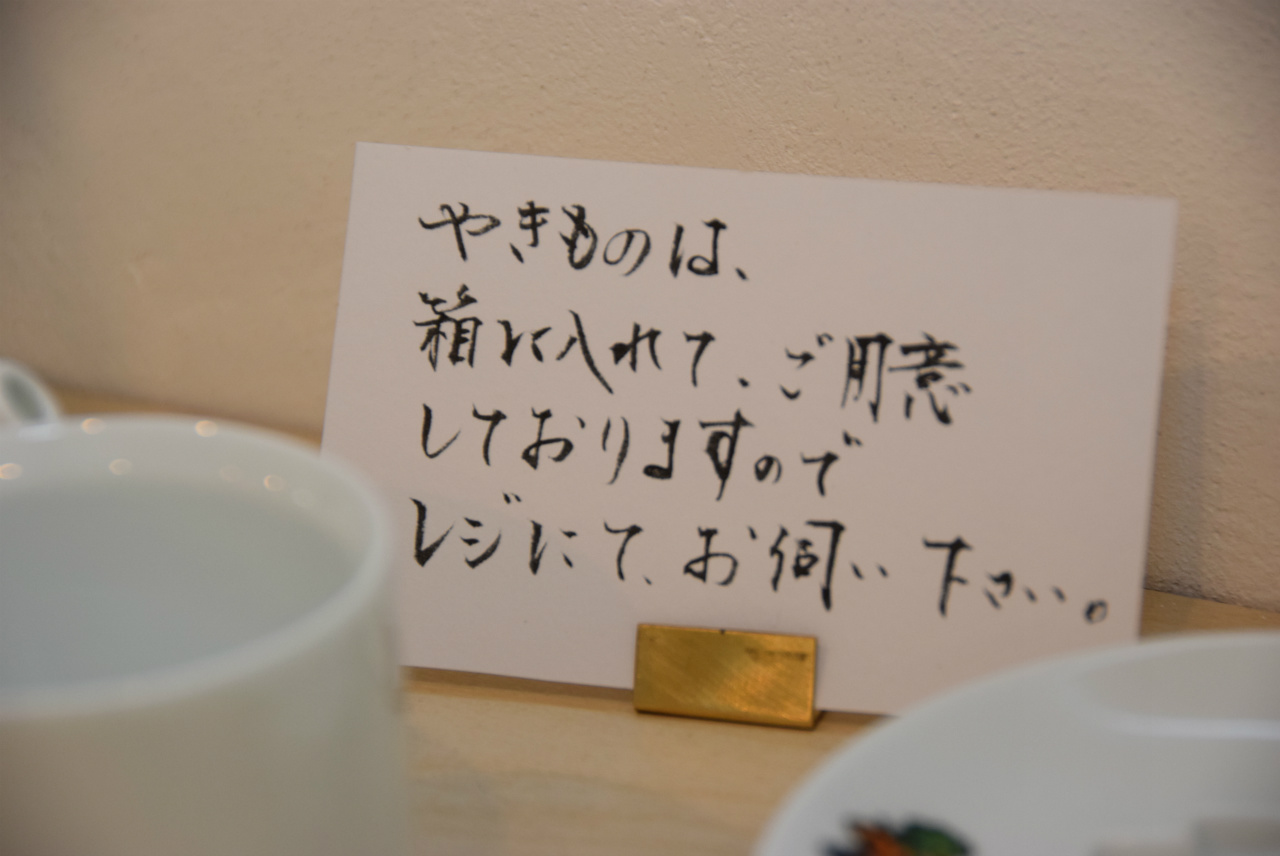 やきものは、
箱に入れて、ご用意
しておりますので
レジにて、お伺い下さい。